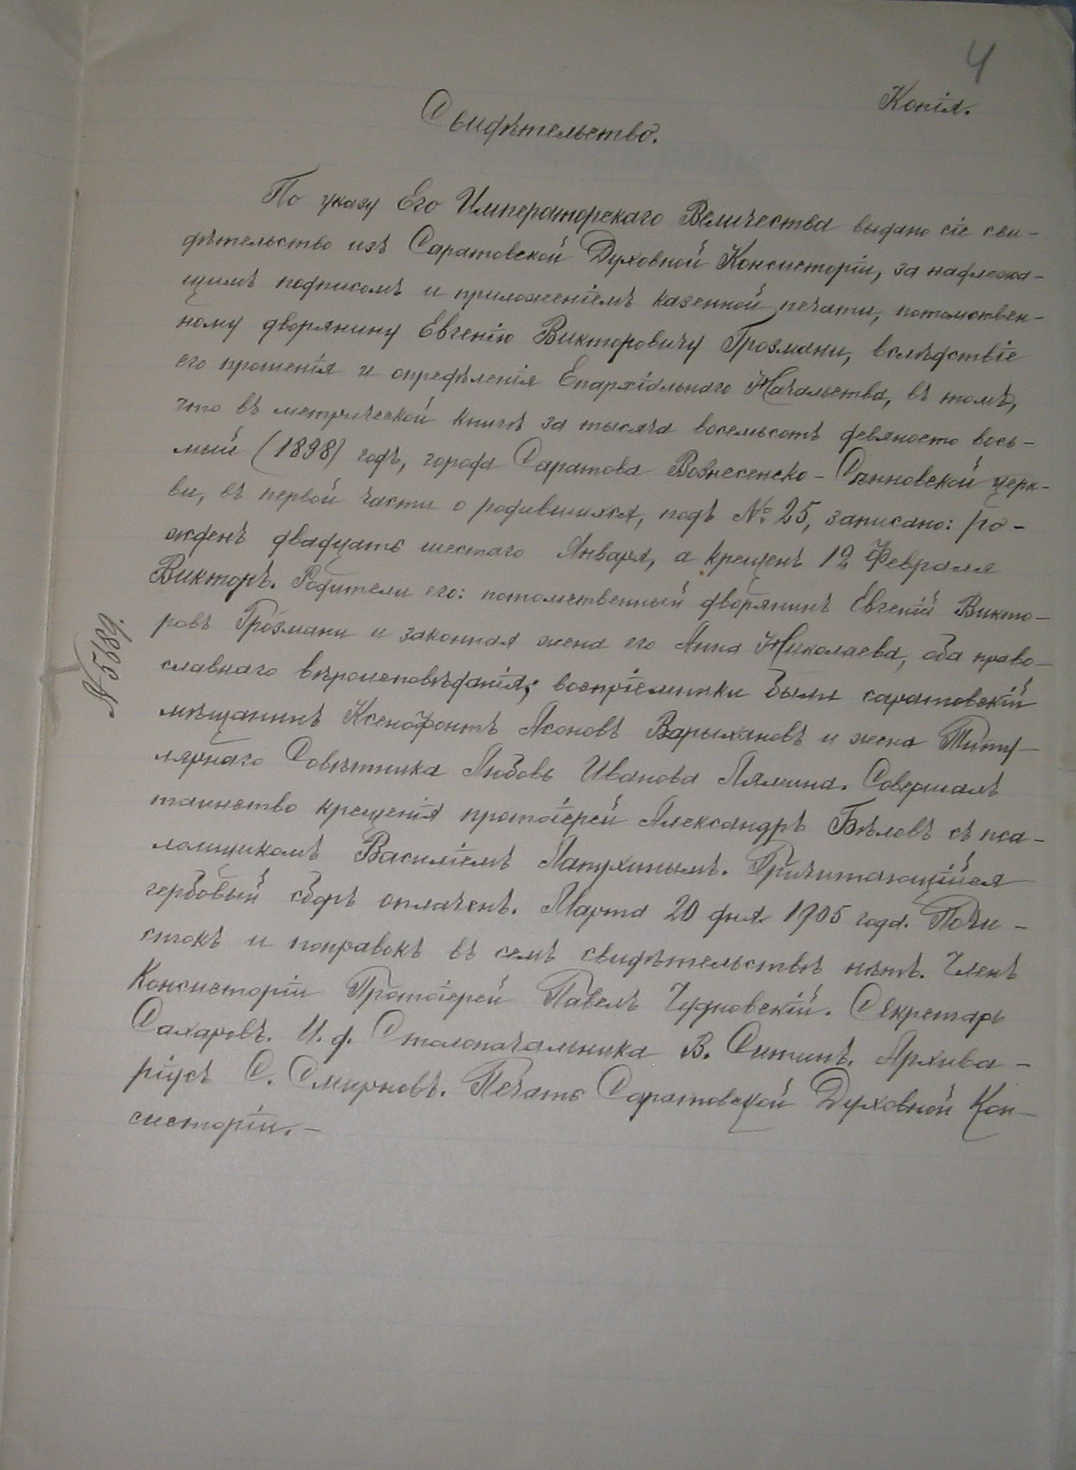 4
Копія.
Свидѣтельство.
По указу Его Императорскаго Величества выдано сіе сви-
дѣтельство изъ Саратовской Духовной Консисторіи, за надлежа-
щимъ подписомъ и приложеніемъ казенной печати, потомствен-
ному дворянину Евгенію Викторовичу Грозмани, вслѣдствіе
его прошенія и опредѣленія Епархіальнаго Начальства, въ томъ,
что въ метрической книгѣ за тысяча восемьсотъ девяносто вось-
мый (1898) годъ, города Саратова Вознесенско-Сѣнновской церк-
ви, въ первой части о родившихся, подъ № 25, записано: ро-
жденъ двадцать шестаго Января, а крещенъ 12 Февраля
Викторъ. Родители его: потомственный дворянинъ Евгеній Викто-
ровъ Грозмани и законная жена его Анна Николаева, оба право-
славнаго вѣроисповѣданія; воспріемники были саратовскій
мѣщанинъ Ксенофонтъ Ясоновъ Варыхановъ и жена Титу-
лярнаго Совѣтника Любовь Иванова Лямина. Совершалъ
таинство крещенія протоіерей Александръ Бѣловъ съ пса-
ломщикомъ Василіемъ Лапухинымъ. Причитающійся
гербовый сборъ оплаченъ. Марта 20 дня 1905 года. Почи-
стокъ и поправокъ въ семъ свидѣтельствѣ нѣтъ. Членъ
Консисторіи Протоіерей Павелъ Чудновскій. Секретарь
Сахаровъ. И. д. Столоначальника В. Ситинъ. Архива-
ріусъ С. Смирновъ. Печать Саратовской Духовной Кон-
систоріи.-
№ 5889.